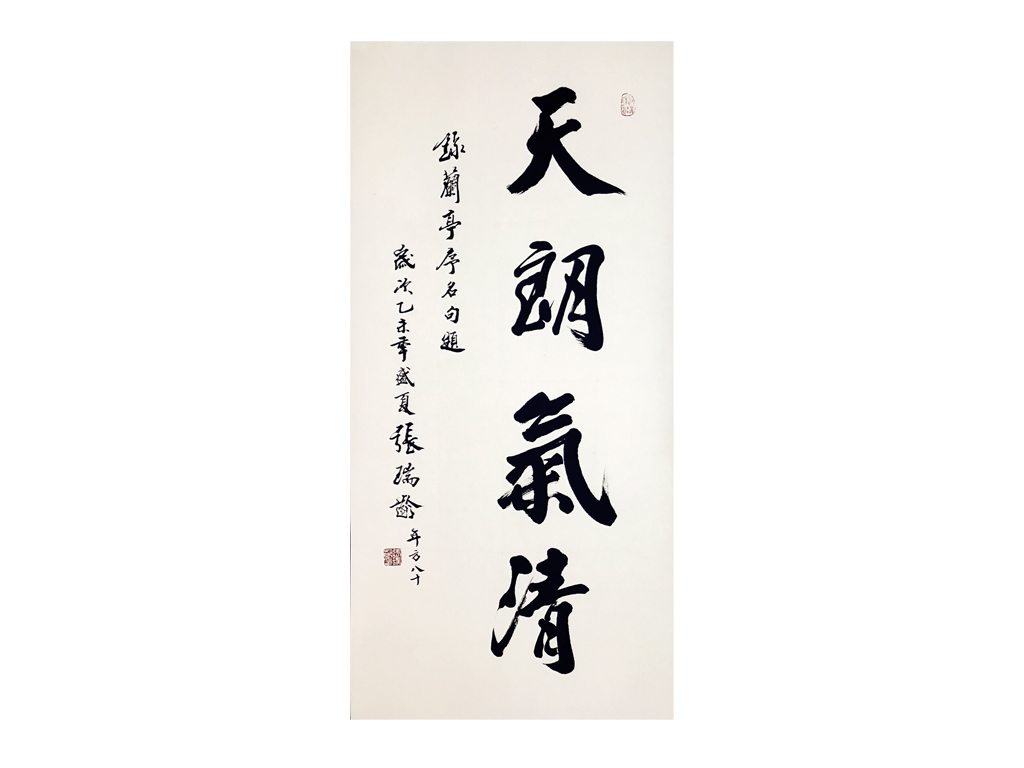 天朗氣清
録蘭亭序名句題
歲次乙未年盛夏張瑞齡年方八十